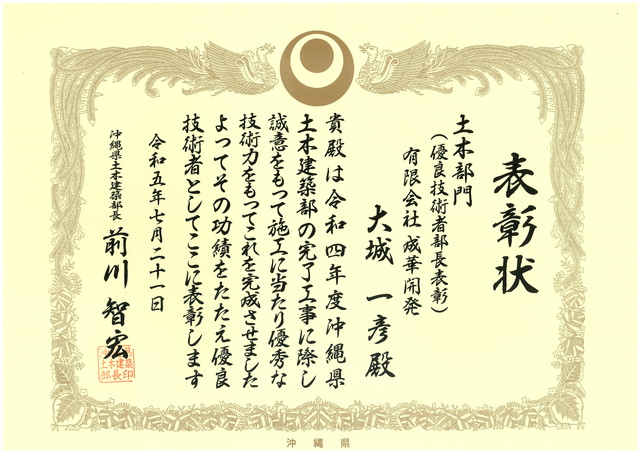 表彰状
土木部門
（優良技術者部長表彰）
有限会社 成華開発
大城 一彦 殿
貴殿は令和四年度沖縄県
土木建築部の完了工事に際し
誠意をもって施工に当たり優秀な
技術力をもってこれを完成させました
よってその功績をたたえ優良
技術者としてここに表彰します
令和五年七月二十一日
沖縄県土木建築部長 前川 智宏
沖縄県